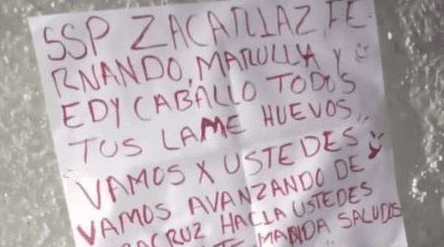 SSP ZACARIAZ, FE-
RNANDO, MARULLA Y
EDY CABALLO TODOS
TUS LAME HUEVOS,,
VAMOS X USTEDES
VAMOS AVANZANDO DE
RACRUZ HACIA USTEDES
TE MANDA SALUDOS